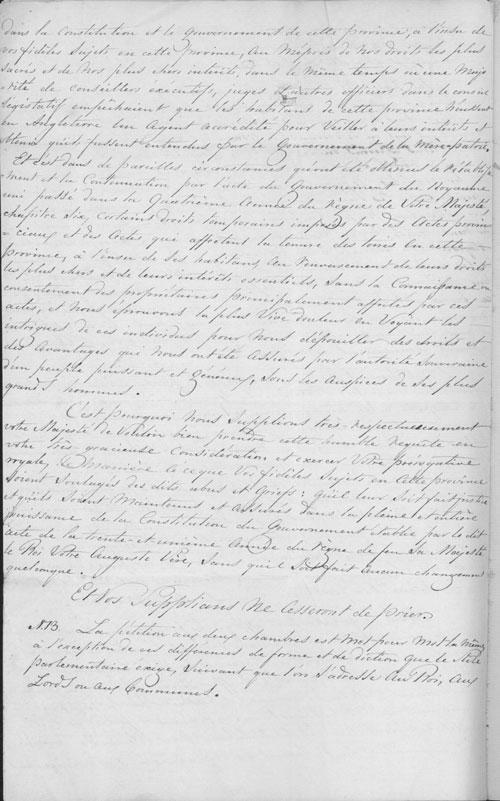 dans la Constitution et le Gouvernement de cette province, à l'insu de
vos fidèles Sujets en cette Province, Au Mépris de Nos droits les plus
sacrés et de Nos plus chers interêts, dans le Même temps où une Majo
rité de Conseillers executifs, juges et autres officiers dans le conseil
Legislatif empêchaient que les habitans de cette province n'eussent
en Angleterre un Agent accrédité pour Veiller à leurs interêts et
obtenir qu'ils fussent entendus par le Gouvernement de la Mère patrie.
Et c'est dans de pareilles circonstances qu'ont été obtenus le Rétablisse
ment et la Continuation par l'acte du Gouvernement du Royaume
uni passé dans la Quatrième Année du Règne de Votre Majesté,
chapitre Six, Certains droits temporaires imposés par des Actes provin
-ciaux et des Actes qui affectent la tenure des terres en cette
province, à l'insu de Ses habitans, Au renversement de leurs droits
les plus chers et de leurs interêts essentiels, Sans la Connaissance ou
consentement des propriétaires principalement affectés par ces
actes, et Nous éprouvons la plus Vive douleur en Voyant les
intrigues de ces individus pour Nous dépouiller des droits et
des Avantages qui Nous ont été Assurés par l'autorité Souveraine
d'un peuple puissant et Généreux, Sous les Auspices de Ses plus
grands hommes.
C'est pourquoi Nous Supplions très-respectueusement
votre Majesté de Vouloir bien prendre cette humble Requête en
votre très-gracieuse Considération et exercer Votre prérogative
royale, de Manière à ce que Vos fidèles Sujets en cette province
Soient Soulagés des dits abus et Griefs: qu'il leur Soit fait justice
et qu'ils Soient Maintenus et Assurés dans la pleine et entière
jouissance de la Constitution du Gouvernement établie par le dit
acte de la trente-et unième Année du Règne de feu Sa Majesté
le Roi Votre Auguste Père, Sans qu'il Soit fait aucun changement
quelconque.
Et Vos Supplians Ne Cesseront de prier.
N.B. La pétition aux deux chambres est Mot pour Mot la Même,
à l'exception de ces differences de forme et de diction que le Stile
parlementaire exige, Suivant que l'on S'adresse Au Roi, Aux
Lords ou aux Communes.